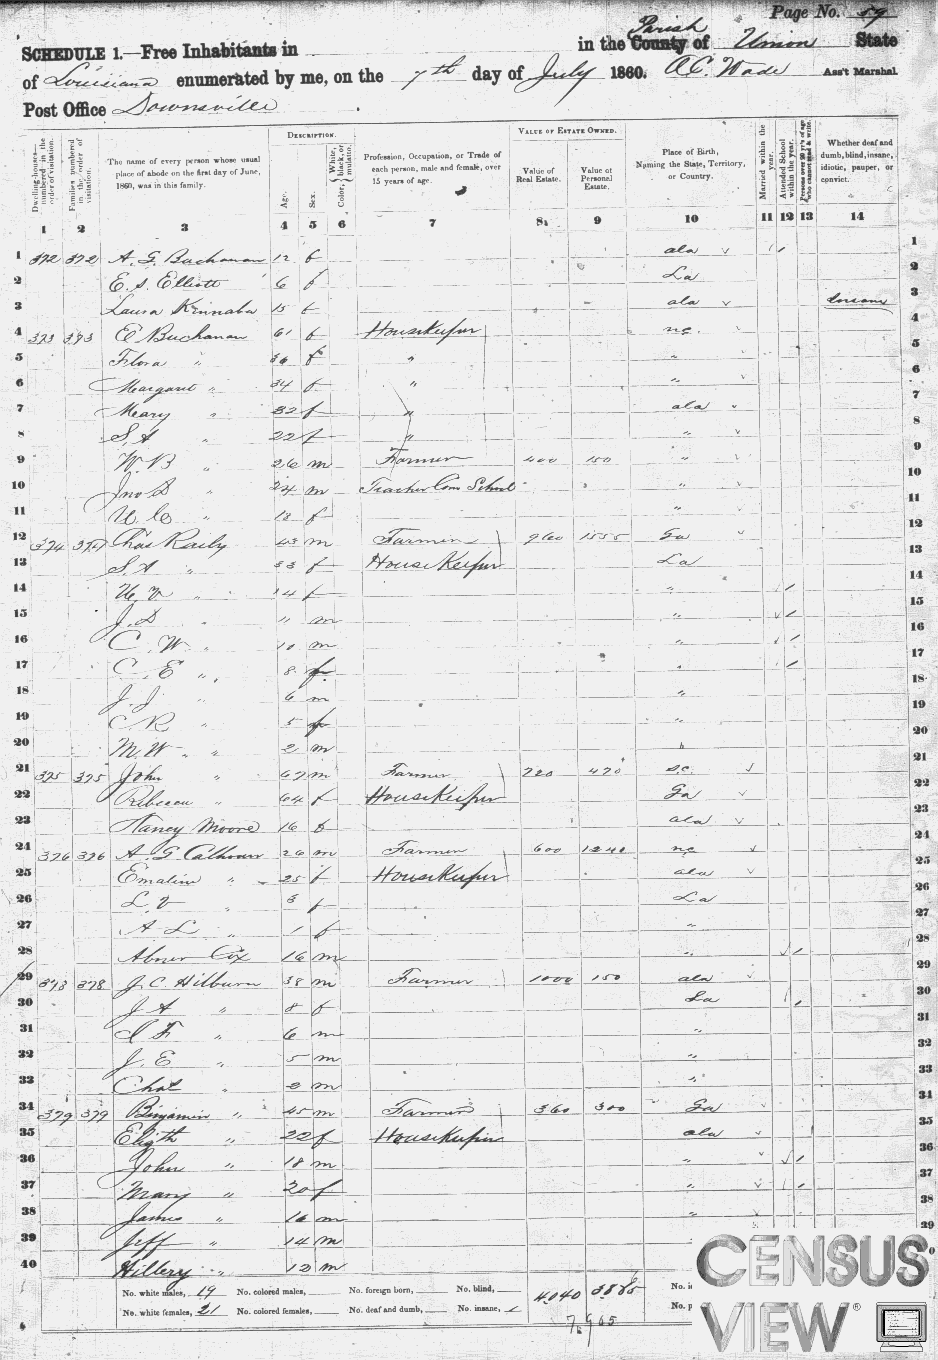 Page No. 59
SCHEDULE 1.—Free Inhabitants in in the County Parish of Union State
of Louisiana enumerated by me, on the 7th day of July 1860. A.C. Wade Ass't Marshal
Post Office Downsville
DESCRIPTION. VALUE OF ESTATE OWNED.
Dwelling-houses—numbered in the order of visitation. Families numbered in the order of visitation. The name of every person whose usual place of abode on the first day of June, 1860, was in this family. Age. Sex. Color, White, black, or mulatto. Profession, Occupation, or Trade of each person, male and female, over 15 years of age. Value of Real Estate. Value of Personal Estate. Place of Birth, Naming the State, Territory, or Country. Married within the year. Attended School within the year. Persons over 20 y'rs of age who cannot read & write. Whether deaf and dumb, blind, insane, idiotic, pauper, or convict.
1 2 3 4 5 6 7 8 9 10 11 12 13 14
1 372 372 A. G. Buchanan 12 f ala 1
2 E. S. Elliott 6 f La 2
3 Laura 15 f ala Insane 3
4 373 373 E Buchanan 61 f HouseKeeper nc 4
5 Flora " f " " 5
6 Margaret " 34 f " " 6
7 Meary " 32 f " ala 7
8 S A " 22 f " " 8
9 W. B " 26 m Farmer 400 150 " 9
10 Jno D " 24 m Teacher Com School " 10
11 " f " 11
12 374 Chas 43 m Farmer Ga 12
13 S A " 33 f HouseKeeper La 13
14 " 14 f " 14
15 J. D " 11 m " 15
16 C. W. " 10 m " 16
17 C. E " 8 f " 17
18 J. J. " 6 m " 18
19 C R " 5 f " 19
20 M. W " 2 m " 20
21 375 375 John " 67 m Farmer 720 470 SC. 21
22 Rebecca " 64 f HouseKeeper Ga 22
23 Nancy Moore 16 f ala 23
24 376 376 A. G Calhoun 26 m Farmer 600 1240 nc 24
25 Emaline " 25 f HouseKeeper ala 25
26 L. V " 3 f La 26
27 A L " 1 f " 27
28 Abner Cox 16 m " 28
29 378 J. C. Hilburn 38 m Farmer 1000 150 ala 29
30 J A " 8 f La 30
31 F. " 6 m " 31
32 J. E " 5 m " 32
33 Chas " m " 33
34 379 379 Benjamin " 45 m Farmer 360 300 Ga 34
35 " 22 f HouseKeeper ala 35
36 John " 18 m " 36
37 Mary " 20 f " 37
38 James " 16 m " 38
39 Jeff " 14 m
40 Hillery " 12 m
No. white males, 19 No. colored males, No. foreign born, No. blind, 4040 3885
No. white females, 21 No. colored females, No. deaf and dumb, No. insane, 1
CENSUS
VIEW®